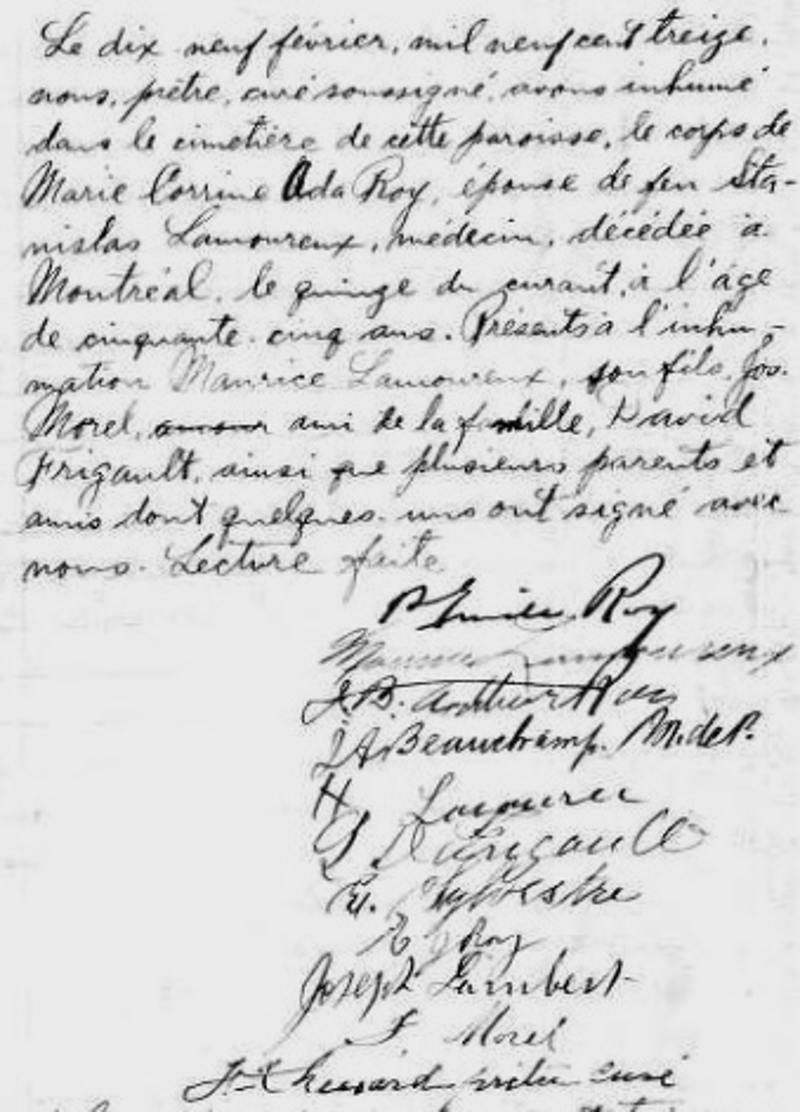 Le dix neuf février, mil neuf cent treize,
nous, prêtre, curé soussigné, avons inhumé
dans le cimetière de cette paroisse, le corps de
Marie Corrine Ada Roy, épouse de feu Sta-
nislas Lamoureux, médecin, décédée à
Montréal, le quinze du courant, à l'âge
de cinquante-cinq ans. Présents à l'inhu-
mation Maurice Lamoureux, son fils, Jos.
Morel, ami de la famille, David
Frigault, ainsi que plusieurs parents et
amis dont quelques-uns ont signé avec
nous. Lecture faite
Roy
Maurice Lamoureux
J.B. Arthur Roy
J A Beauchamp. M.de P.
H
E. Sylvestre
Roy
Joseph Lambert
Morel
prêtre curé